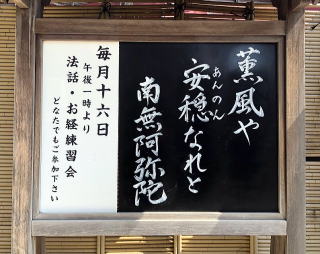 薫風や
安穏なれと
あんのん
南無阿弥陀
毎月十六日
午後一時より
法話・お経練習会
どなたでもご参加下さい